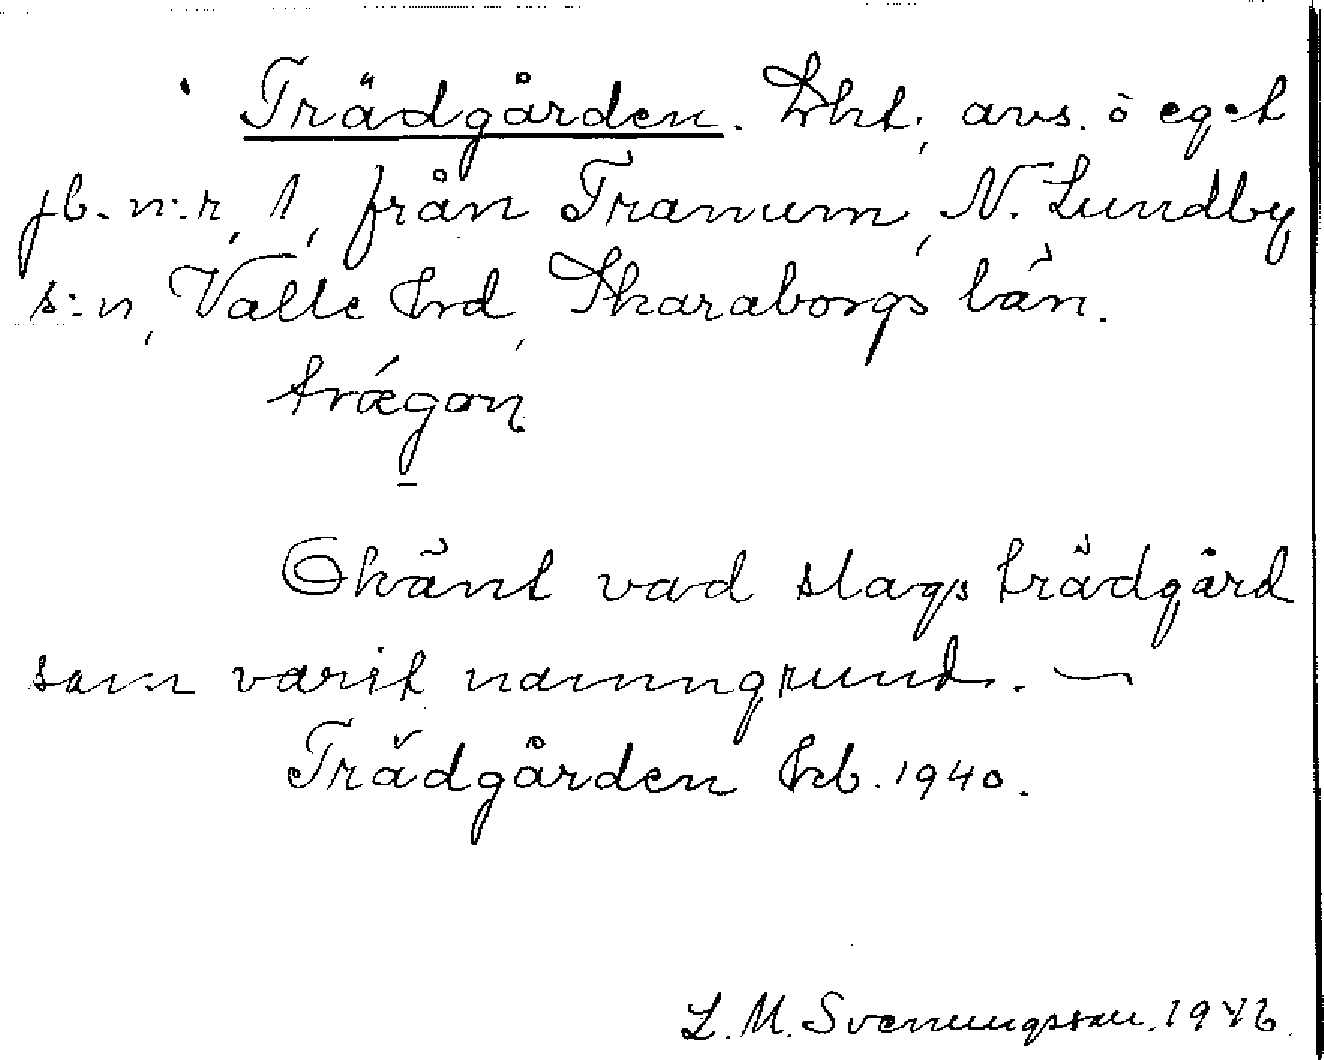 Trädgården. Lht, avs. o eget
jb. n:r, 1, från Tranum, N. Lundby
s:n, Valle hrd, Skaraborgs län.
trǽgaɳ
Okänt vad slags trädgård
som varit namngrund. —
Trädgården Jrb. 1940.
L. M. Svenungsson. 1946.